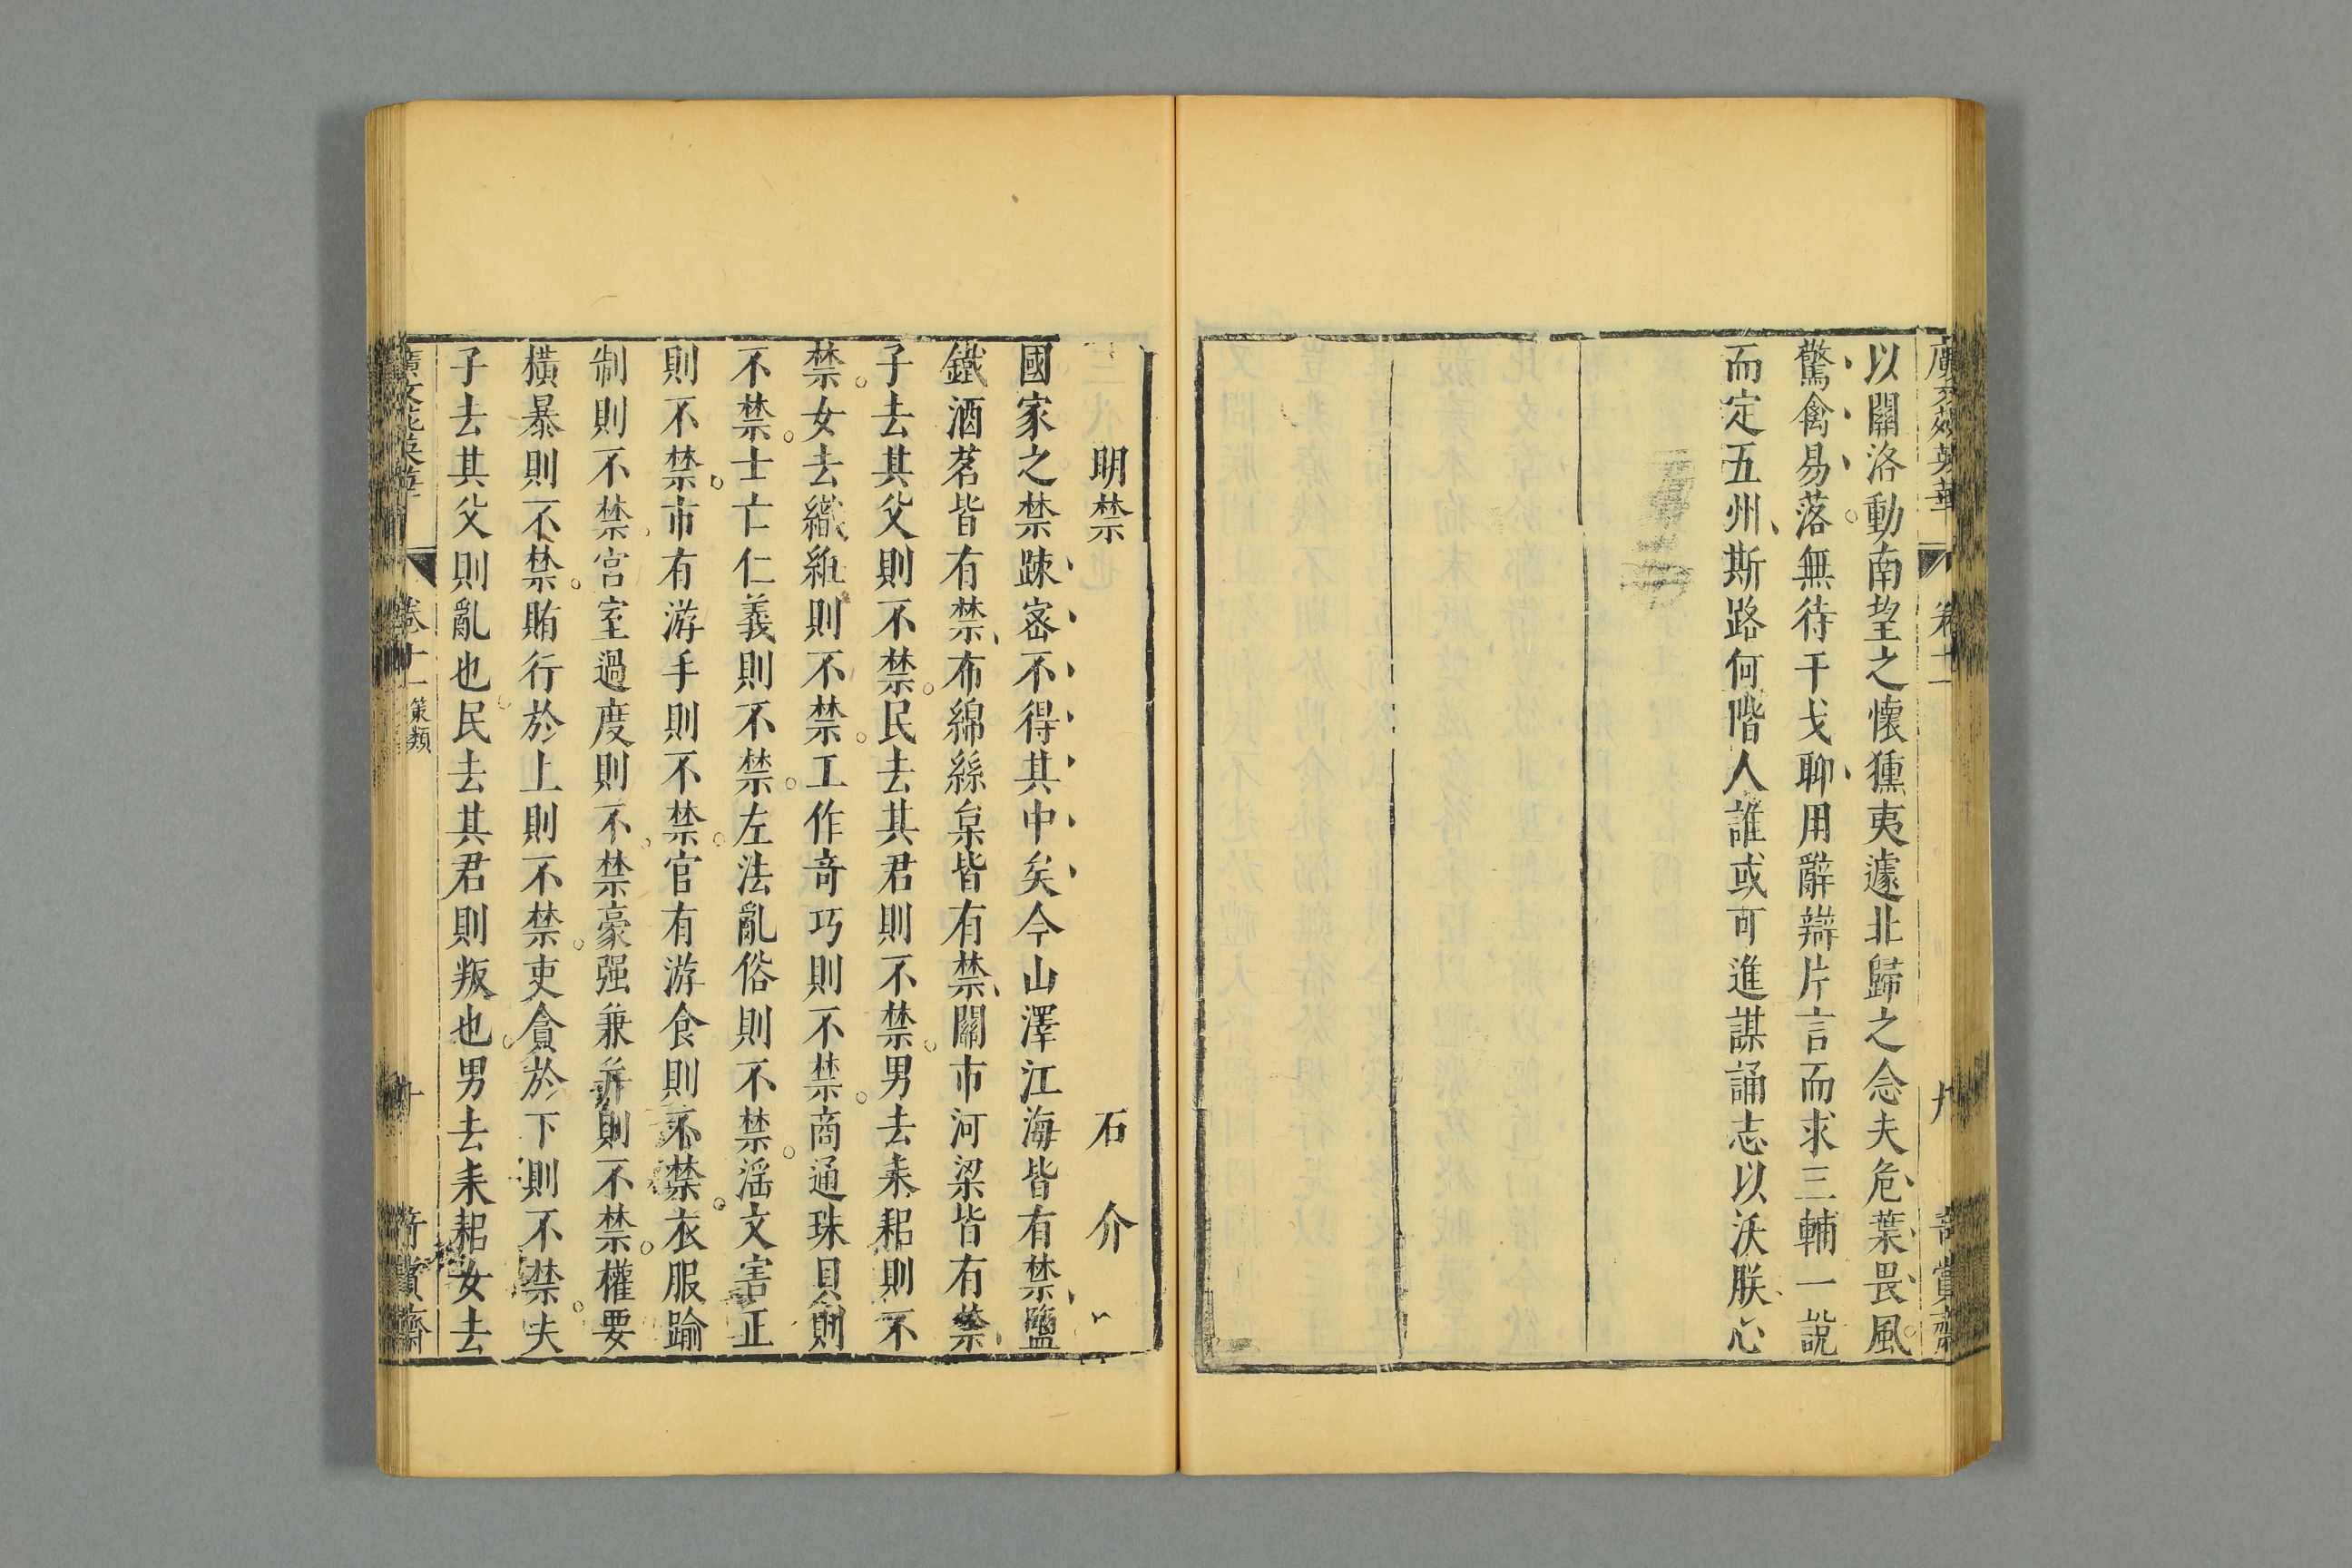 以關洛動南望之懷獯夷遽北歸之念夫危葉畏風
驚禽易落無待干戈聊用辭辯片言而求三輔一説
而定五州斯路何階人誰或可進謀誦志以沃朕心
明禁 石介
國家之禁踈宻不得其中矣今山澤江海皆有禁鹽
鐵酒茗皆有禁布綿絲枲皆有禁關市河梁皆有禁
子去其父則不禁民去其君則不禁男去耒耜則不
禁女去織絍則不禁工作竒巧則不禁商通珠貝則
不禁士亡仁義則不禁左法亂俗則不禁淫文害正
則不禁市有游手則不禁官有游食則不禁衣服踰
制則不禁宫室過度則不禁豪强兼并則不禁權要
橫暴則不禁賄行於上則不禁吏貪於下則不禁夫
子去其父則亂也民去其君則叛也男去耒耜女去
廣文苑英華 卷十二 策類 十 奇賞齋